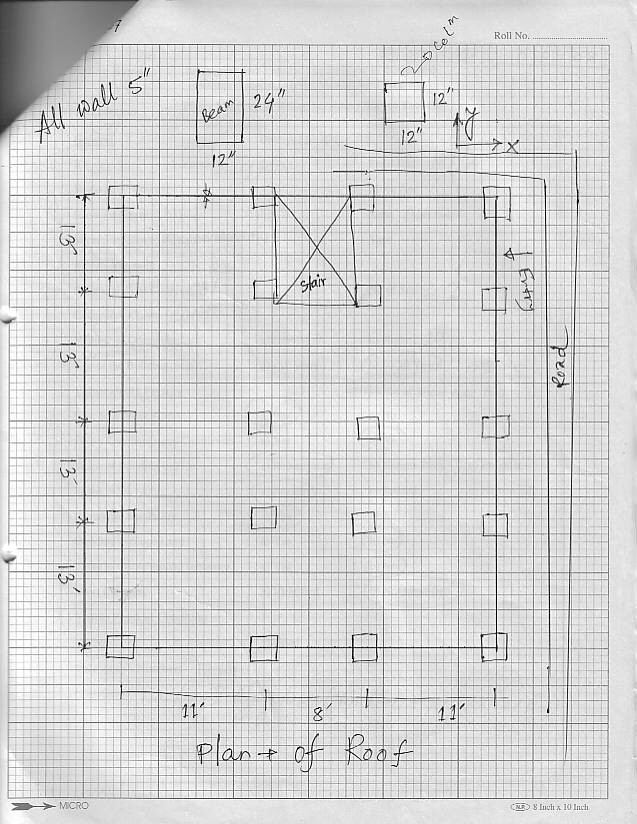 7
Roll No.
All wall 5"
Beam
24"
12"
20 Colm
12"
12"
y
x
13'
13'
13'
13'
Stair
Entry
Road
11'
8'
11'
Plan of Roof
MICRO
NLR 8 Inch x 10 Inch